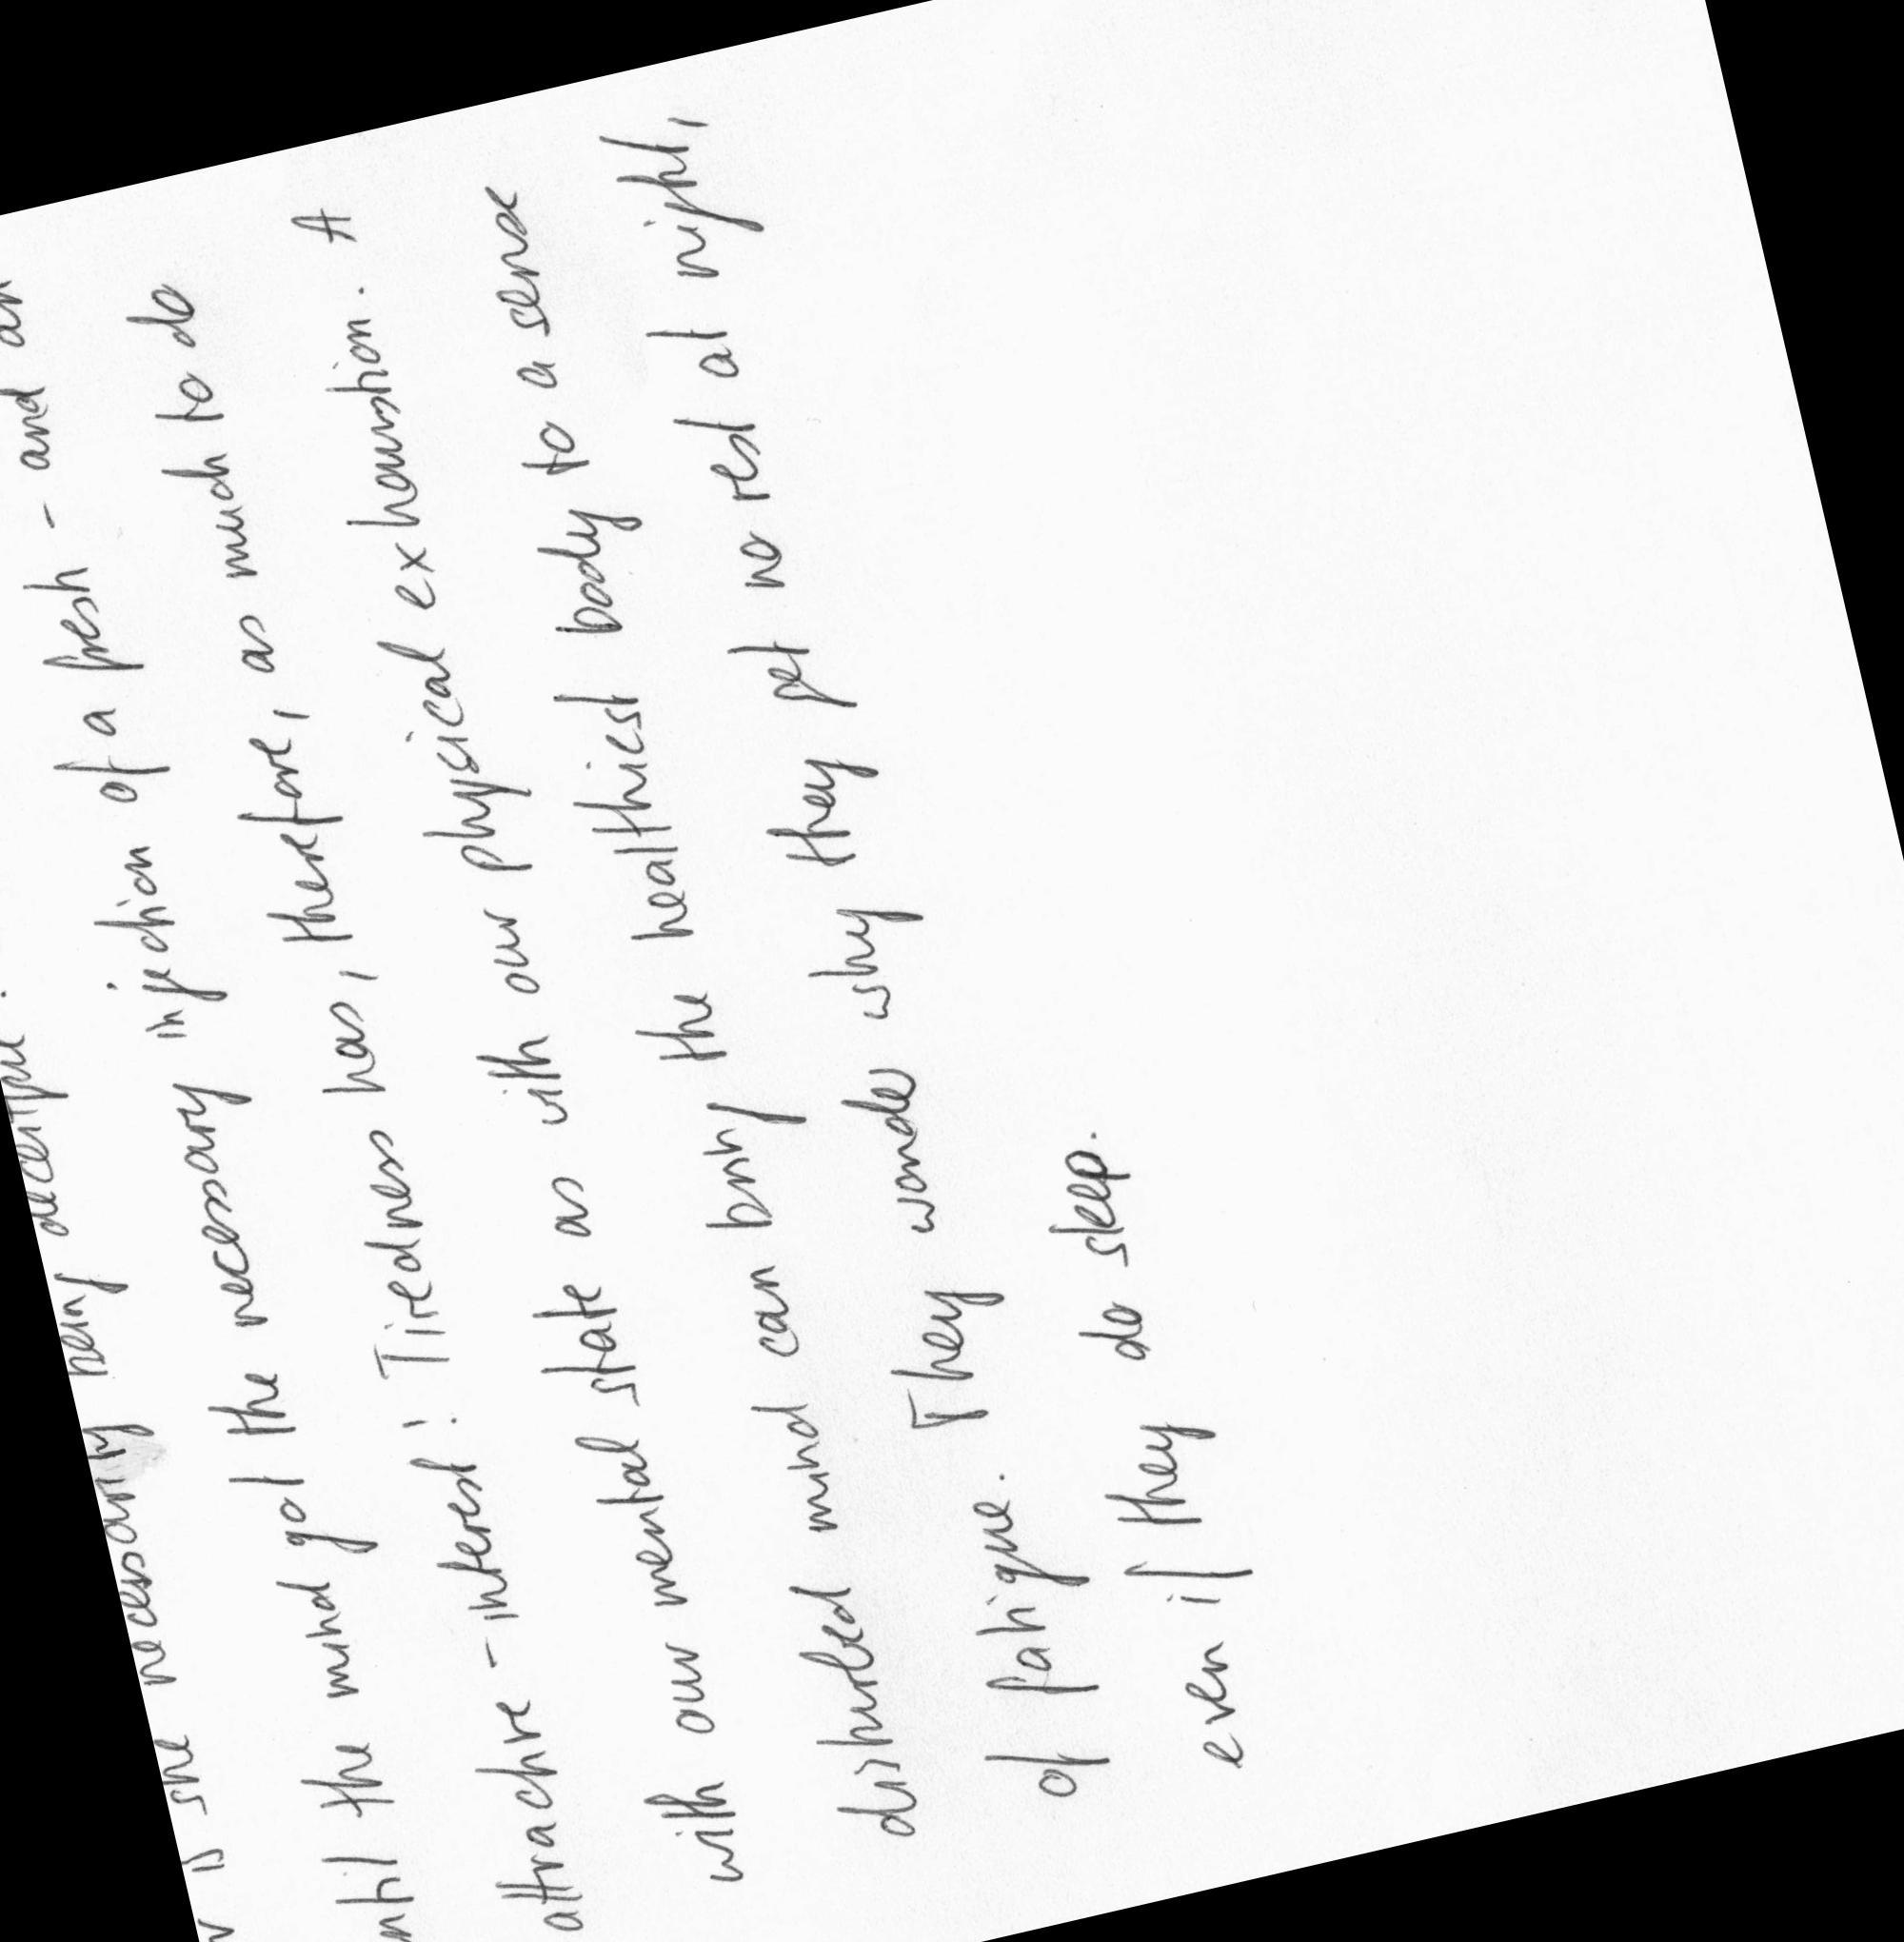 is she necessarily being deceitful.
the mind got the necessary injection of a fresh - and an
attractive - interest! Tiredness has, therefore, as much to do
with our mental state as with our physical exhaustion. A
disturbed mind can bring the healthiest body to a sense
of fatigue. They wonder why they get no rest at night,
even if they do sleep.